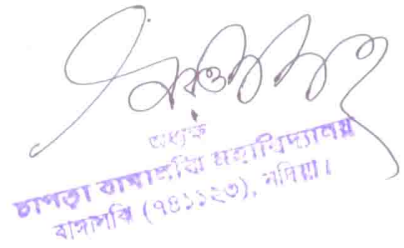 অধ্যক্ষ
চাপড়া বাঙ্গালঝি মহাবিদ্যালয়
বাঙ্গালঝি (৭৪১১২৩), নদিয়া।